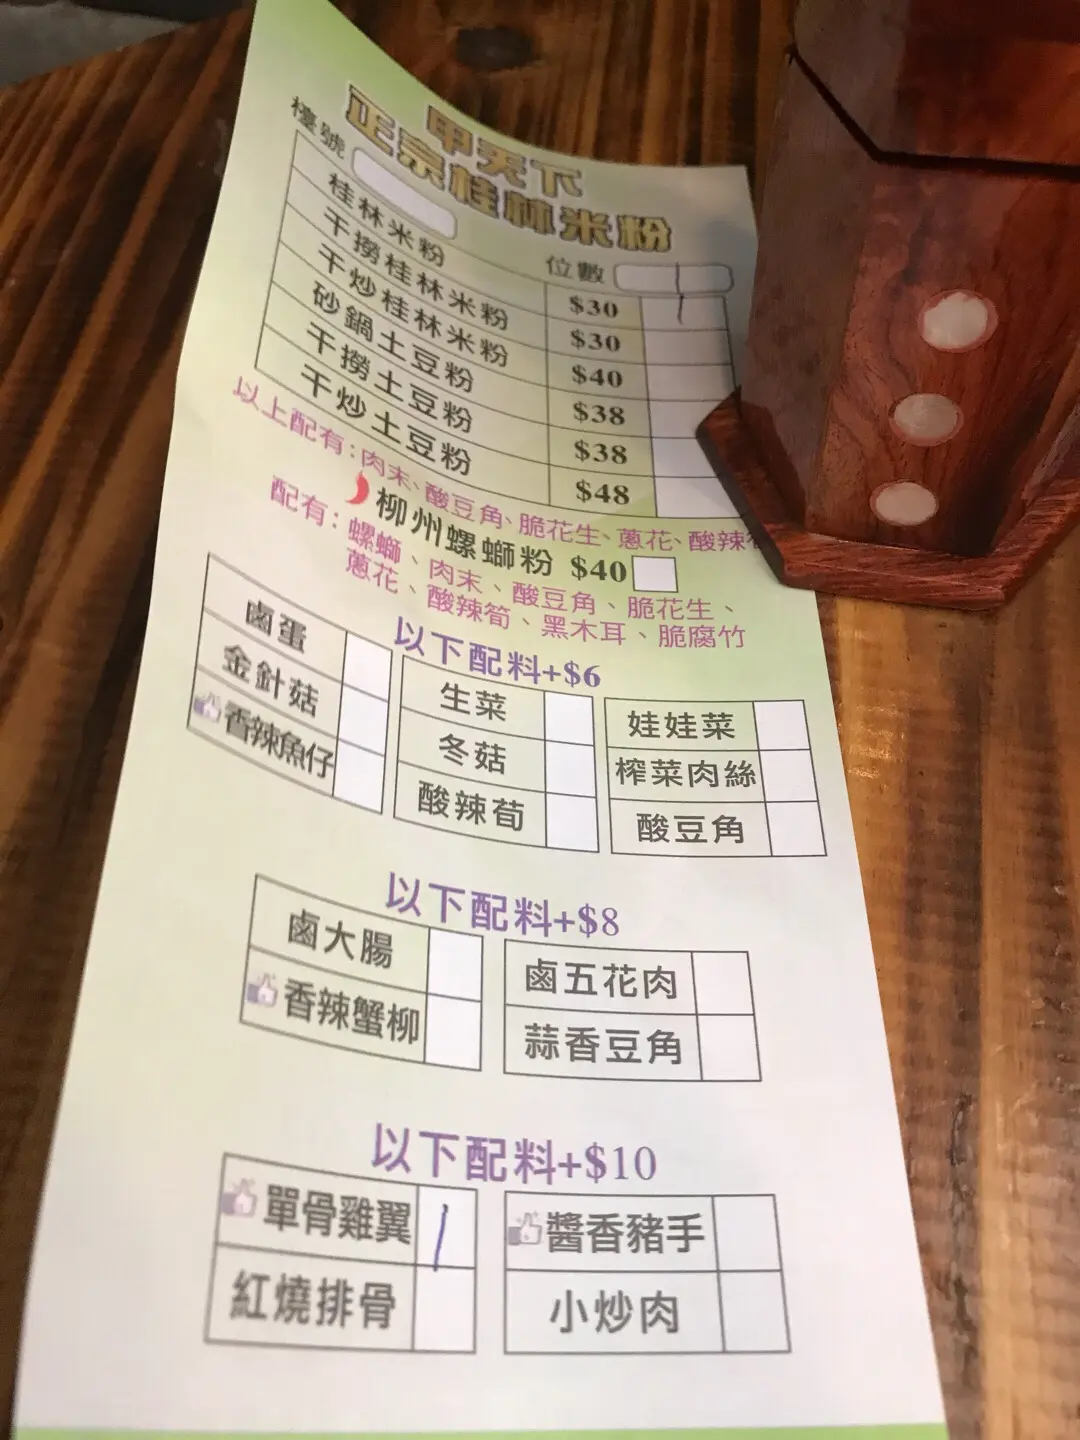 甲天下
正宗桂林米粉
檯號
位數
桂林米粉 $30
干撈桂林米粉 $30
干炒桂林米粉 $40
砂鍋土豆粉 $38
干撈土豆粉 $38
干炒土豆粉 $48
以上配有：肉末、酸豆角、脆花生、蔥花、酸辣
柳州螺螄粉 $40
配有：螺螄、肉末、酸豆角、脆花生、
蔥花、酸辣筍、黑木耳、脆腐竹
以下配料+$6
鹵蛋 生菜 娃娃菜
金針菇 冬菇 榨菜肉絲
香辣魚仔 酸辣荀 酸豆角
以下配料+$8
鹵大腸 鹵五花肉
香辣蟹柳 蒜香豆角
以下配料+$10
單骨雞翼 醬香豬手
紅燒排骨 小炒肉